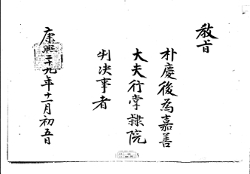 教旨
朴慶後為嘉善
大夫行掌隸院
判决事者
康熙二十九年十二月初五日